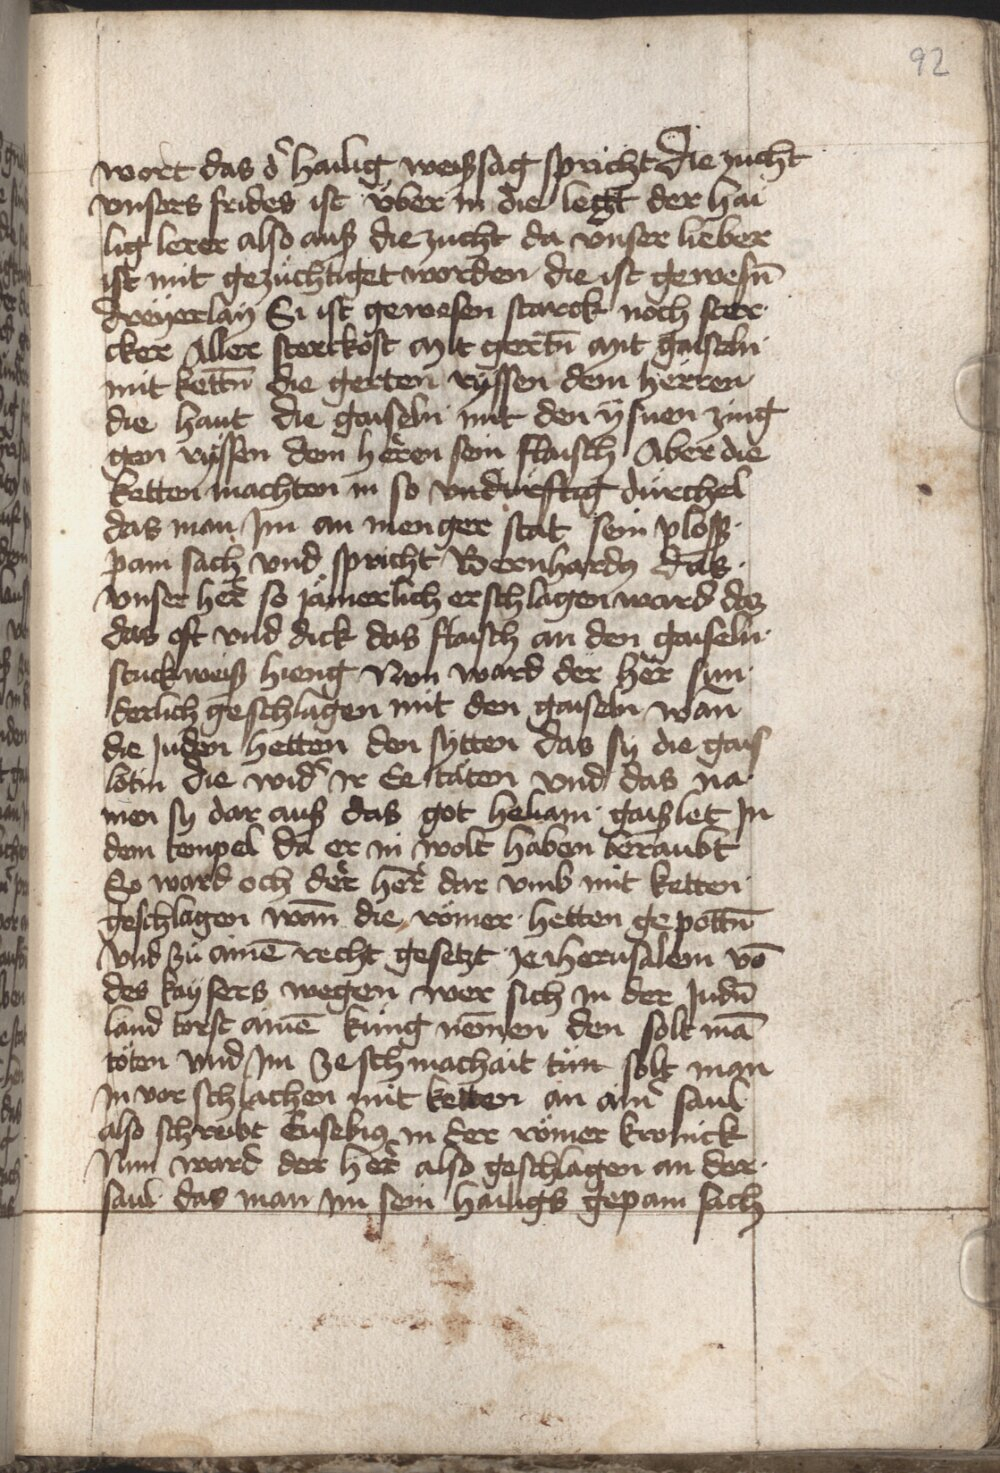 92
wort das dˀ hailig weiſſag spricht Die zucht
vnsers frides ist vber in die legt der hai
lig lerer also auß die zucht da vnser lieber
ist mit gezüchtiget worden die ist gewesn̄
dreÿerlaÿ Si ist gewesen starck noch ster
cker Aller sterckost Mit gertn̄ Mit gaiseln
mit kettn̄ die gerten ryssen dem herren
die haut die gaiseln mit den ÿsnen zing
gen ryssen dem herren sein flaisch Aber die
ketten machten in so vndürfftig dürchel
das man im an menger stat sein ploss
pain sach vnd spricht Bernhardꝰ das
vnser her̄ so jamerlich erschlagen ward daz
das oft vnd dick das flaisch an den gaiseln
stuckweiß hieng Nun ward der her̄ sun
derlich geschlagen mit den gaiseln wan
die Juden hetten den sytten das sy die gais
lotin die widˀ ir Ee täten vnd das na
men sy dar auß das got heliam gaißlet In
dem tempel da er in wolt haben beraubt
So ward och der her̄ dar vmb mit ketten
geschlagen wan̄ die römer hetten gepottn̄
vnd zu aine͞ recht gesetzt ze iherusalem vo͞
des kaysers wegen wer sich in der Judn̄
land torst aine͞ kung ne͞men den solt ma͞
töten vnd Im ze schmachait tün solt man
in vor schlachen mit ketten an ainˀ saul
also schreibt Eusebiꝰ in der römer kronick
Nun ward der her̄ also geschlagen an der
saul das man im sein hailigs gepain sach